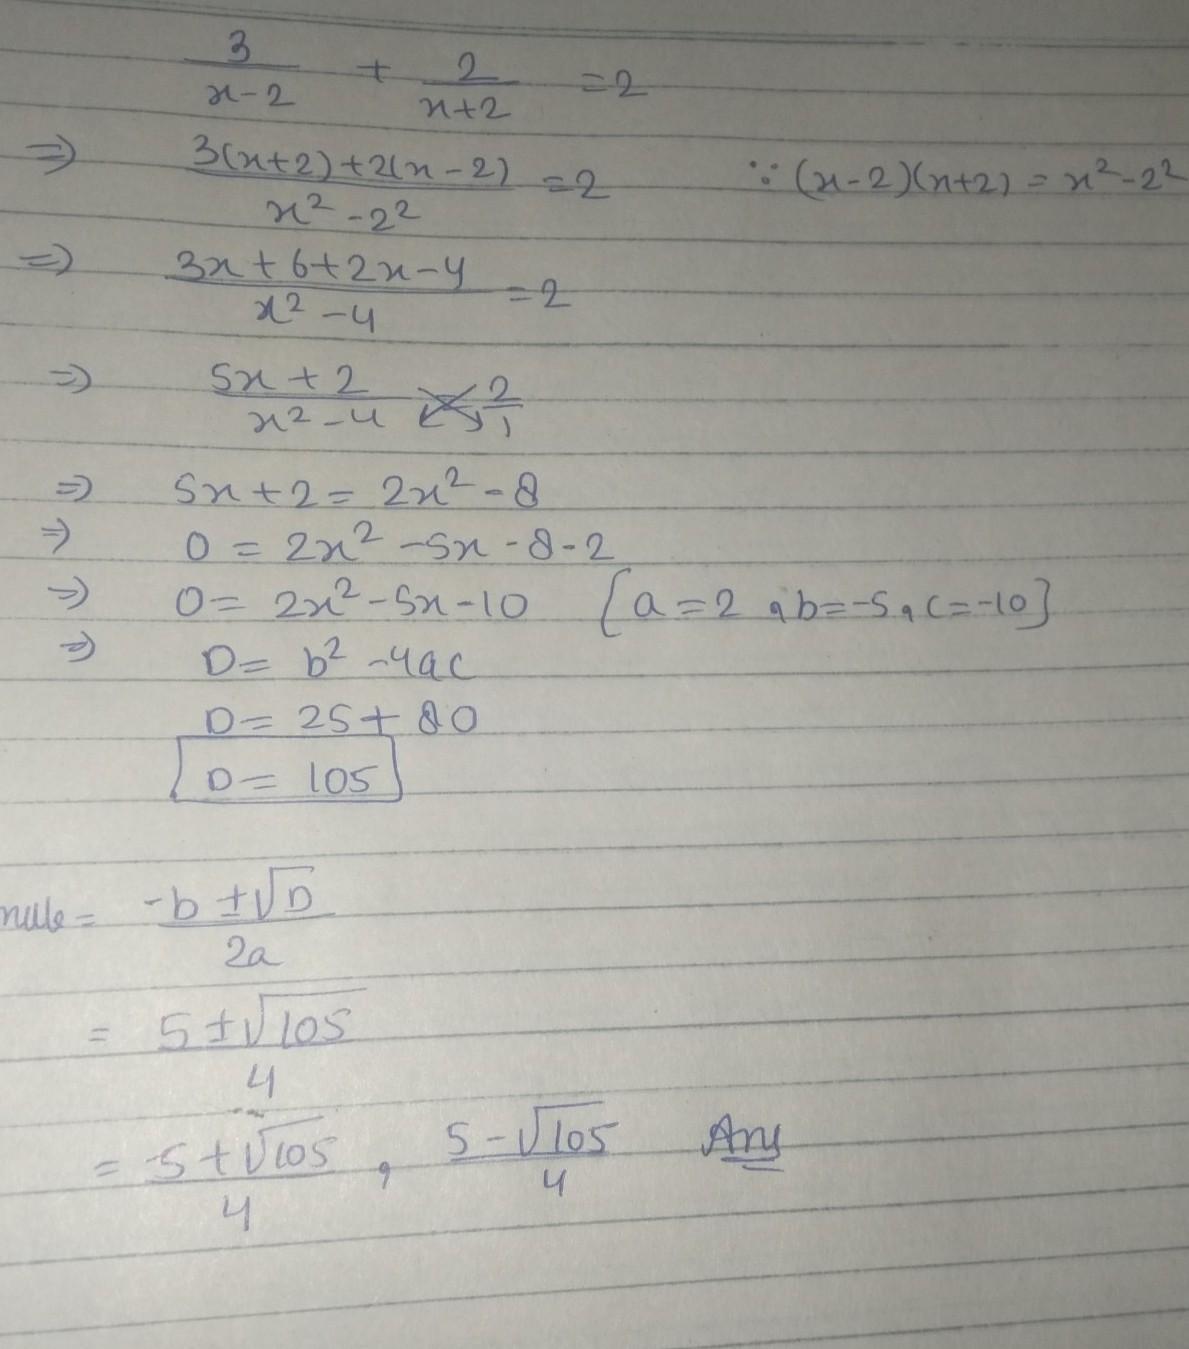 3/(x-2) + 2/(x+2) = 2
⇒ (3(x+2)+2(x-2))/(x²-2²) = 2 ∵ (x-2)(x+2) = x²-2²
⇒ (3x+6+2x-4)/(x²-4) = 2
⇒ (5x+2)/(x²-4) = 2/1
⇒ 5x+2 = 2x²-8
⇒ 0 = 2x²-5x-8-2
⇒ 0 = 2x²-5x-10 [a=2, b=-5, c=-10]
⇒ D = b²-4ac
D = 25+80
D = 105
= (-b±√D)/2a
= (5±√105)/4
= (5+√105)/4 , (5-√105)/4 Ans